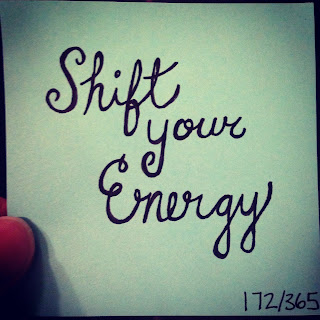 Shift
your
Energy
172/365